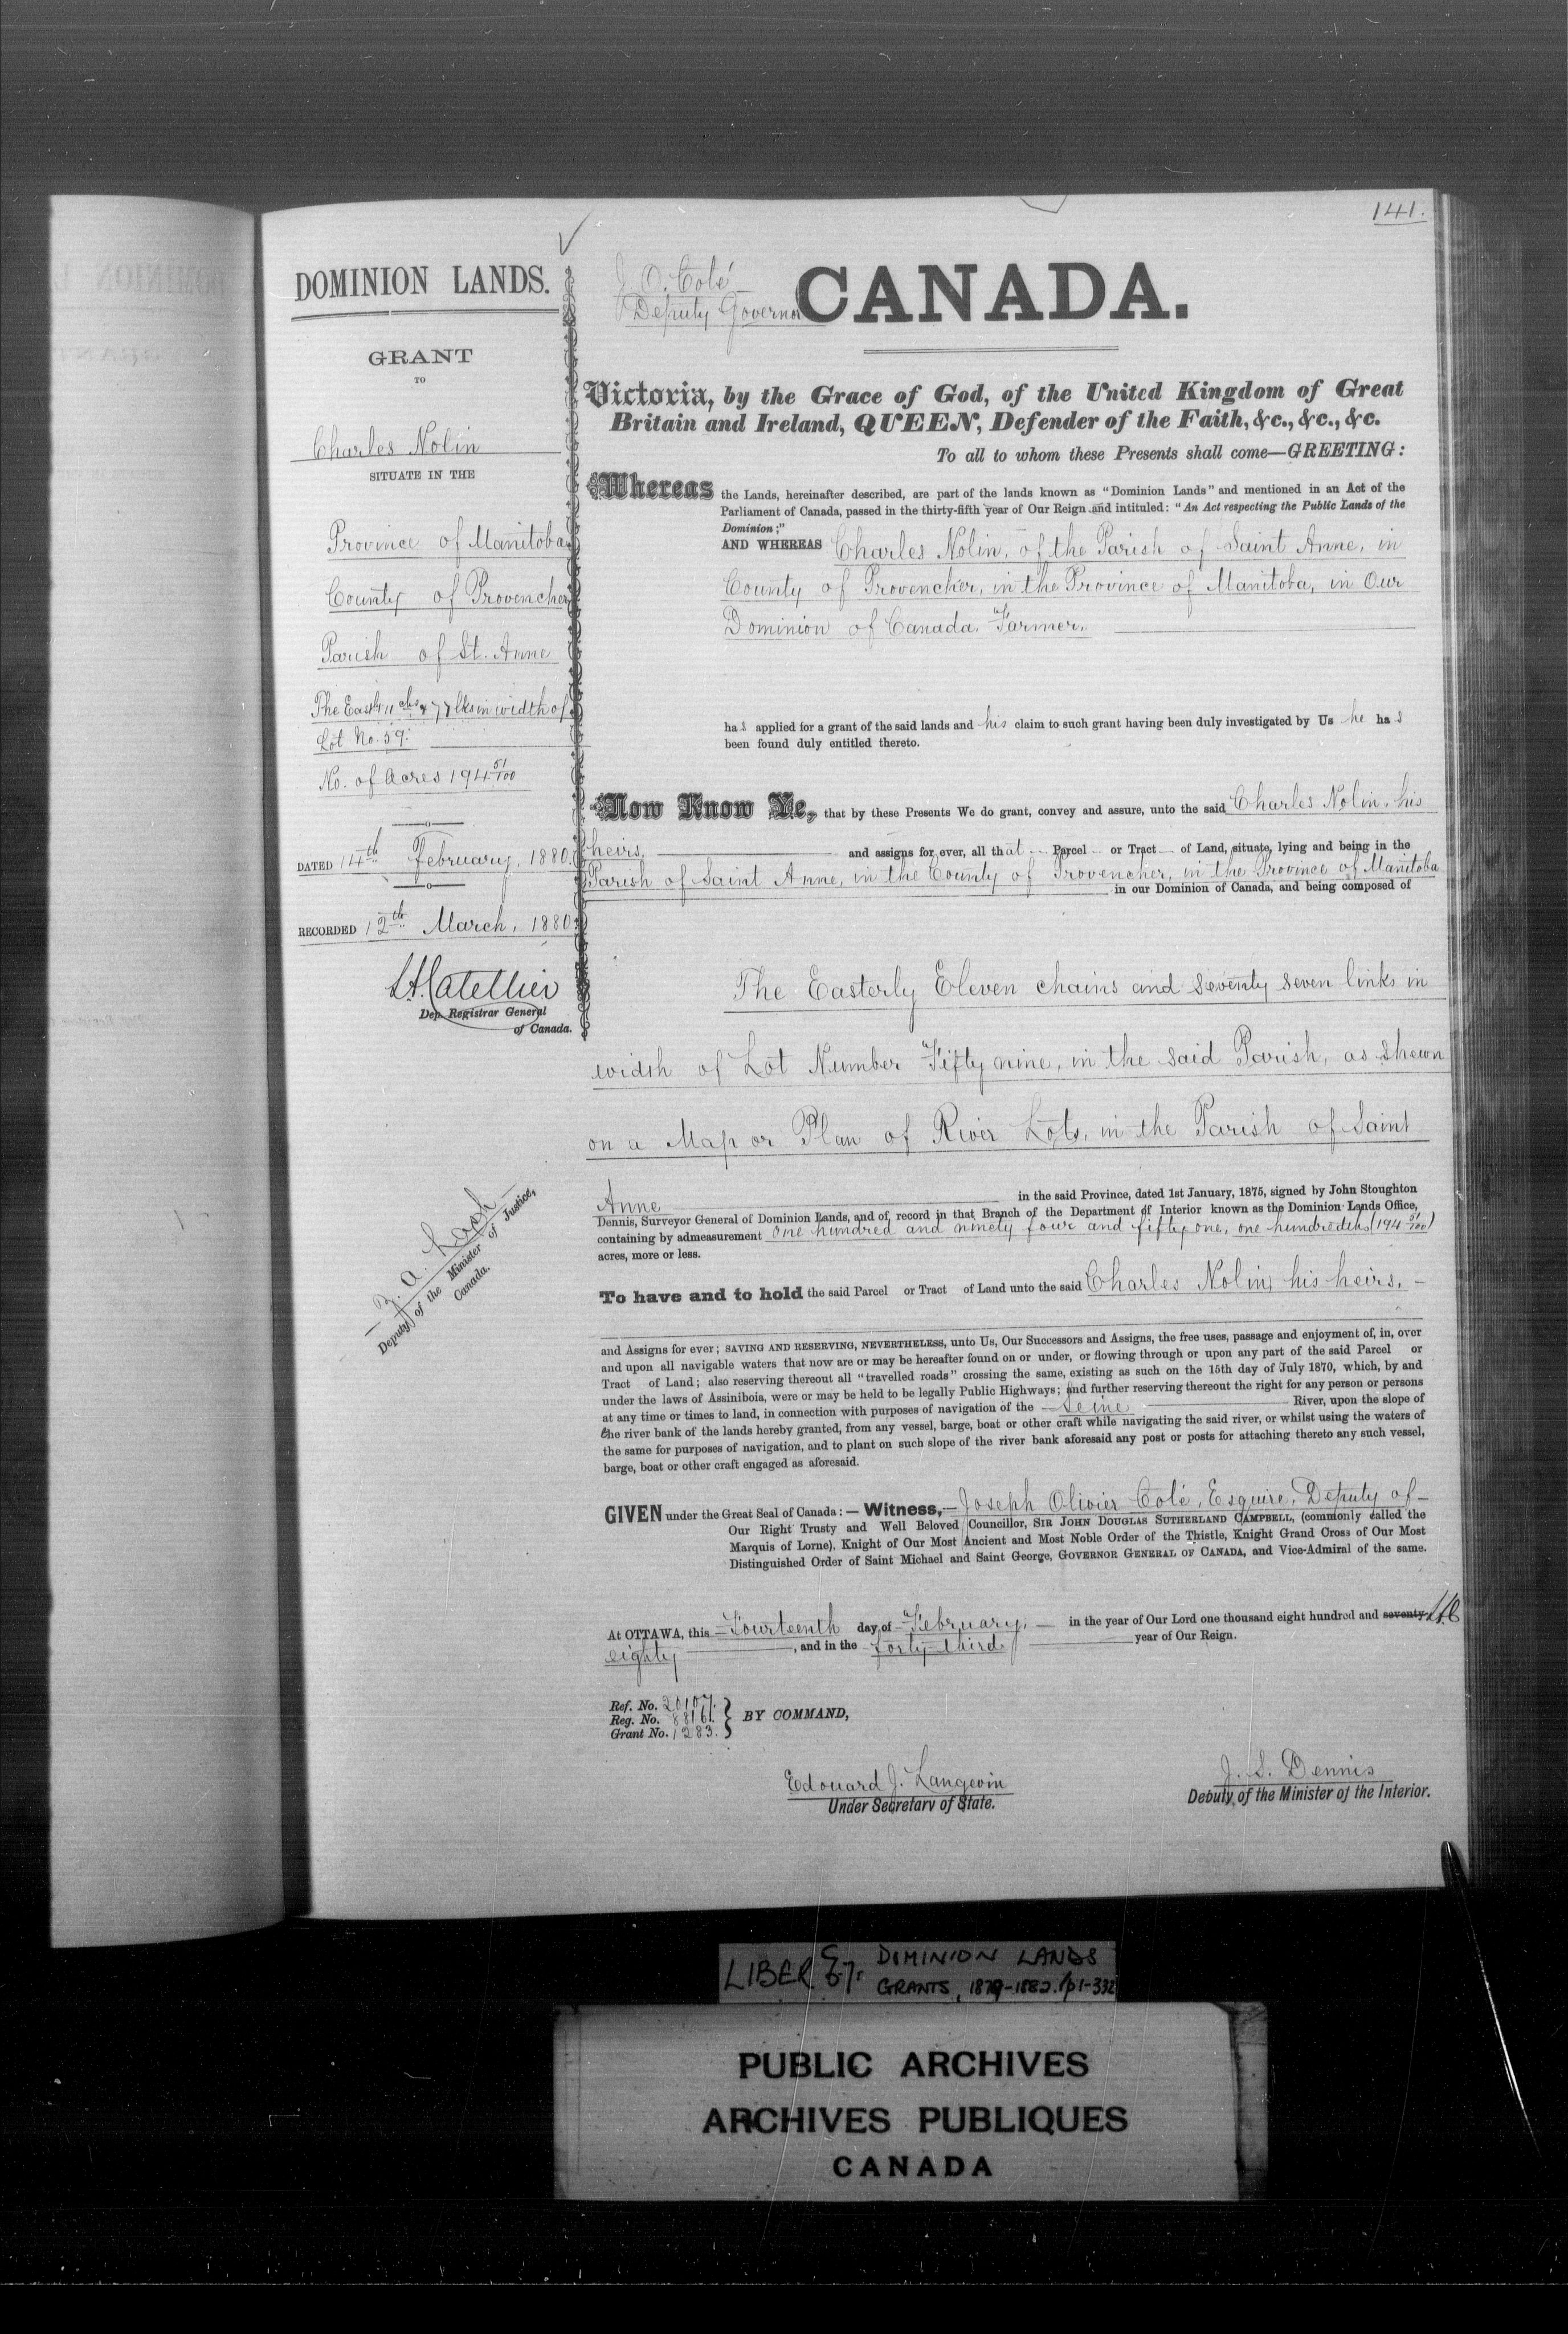 141.
DOMINION LANDS.
GRANT
TO
Charles Nolin
SITUATE IN THE
Province of Manitoba
County of Provencher
Parish of St. Anne
The Eastly 11 chs & 77 lks in width of
Lot No. 59.
No. of Acres 194 51/100
DATED 14th February, 1880.
RECORDED 12th March, 1880.
L.A. Catellier
Dep. Registrar General
of Canada.
Z. A. Lash
Deputy of the Minister of Justice,
Canada.
J. O. Coté
Deputy Governor
CANADA.
Victoria, by the Grace of God, of the United Kingdom of Great
Britain and Ireland, QUEEN, Defender of the Faith, &c., &c., &c.
To all to whom these Presents shall come—GREETING:
Whereas the Lands, hereinafter described, are part of the lands known as "Dominion Lands" and mentioned in an Act of the
Parliament of Canada, passed in the thirty-fifth year of Our Reign and intituled: "An Act respecting the Public Lands of the
Dominion;"
AND WHEREAS Charles Nolin, of the Parish of Saint Anne, in
County of Provencher, in the Province of Manitoba, in Our
Dominion of Canada. Farmer.
has applied for a grant of the said lands and his claim to such grant having been duly investigated by Us he has
been found duly entitled thereto.
Now Know Ye, that by these Presents We do grant, convey and assure, unto the said Charles Nolin, his
heirs, and assigns for ever, all that Parcel or Tract of Land, situate, lying and being in the
Parish of Saint Anne, in the County of Provencher, in the Province of Manitoba
in our Dominion of Canada, and being composed of
The Easterly Eleven chains and seventy seven links in
width of Lot Number Fifty nine, in the said Parish, as shewn
on a Map or Plan of River Lots, in the Parish of Saint
Anne in the said Province, dated 1st January, 1875, signed by John Stoughton
Dennis, Surveyor General of Dominion Lands, and of record in that Branch of the Department of Interior known as the Dominion Lands Office,
containing by admeasurement one hundred and ninety four and fifty one, one hundredths (194 51/100)
acres, more or less.
To have and to hold the said Parcel or Tract of Land unto the said Charles Nolin, his heirs,
and Assigns for ever; SAVING AND RESERVING, NEVERTHELESS, unto Us, Our Successors and Assigns, the free uses, passage and enjoyment of, in, over
and upon all navigable waters that now are or may be hereafter found on or under, or flowing through or upon any part of the said Parcel or
Tract of Land; also reserving thereout all "travelled roads" crossing the same, existing as such on the 15th day of July 1870, which, by and
under the laws of Assiniboia, were or may be held to be legally Public Highways; and further reserving thereout the right for any person or persons
at any time or times to land, in connection with purposes of navigation of the Seine River, upon the slope of
the river bank of the lands hereby granted, from any vessel, barge, boat or other craft while navigating the said river, or whilst using the waters of
the same for purposes of navigation, and to plant on such slope of the river bank aforesaid any post or posts for attaching thereto any such vessel,
barge, boat or other craft engaged as aforesaid.
GIVEN under the Great Seal of Canada:— Witness,— Joseph Olivier Coté, Esquire, Deputy of
Our Right Trusty and Well Beloved Councillor, SIR JOHN DOUGLAS SUTHERLAND CAMPBELL, (commonly called the
Marquis of Lorne), Knight of Our Most Ancient and Most Noble Order of the Thistle, Knight Grand Cross of Our Most
Distinguished Order of Saint Michael and Saint George, GOVERNOR GENERAL OF CANADA, and Vice-Admiral of the same.
At OTTAWA, this Fourteenth day of February, in the year of Our Lord one thousand eight hundred and seventy LAC
eighty, and in the forty third year of Our Reign.
Ref. No. 20107.
Reg. No. 88161.
Grant No. 1283.
BY COMMAND,
Edouard J. Langevin
Under Secretary of State.
J. S. Dennis
Deputy of the Minister of the Interior.
LIBER. 87. DOMINION LANDS
GRANTS, 1879-1882. pp1-332
PUBLIC ARCHIVES
ARCHIVES PUBLIQUES
CANADA